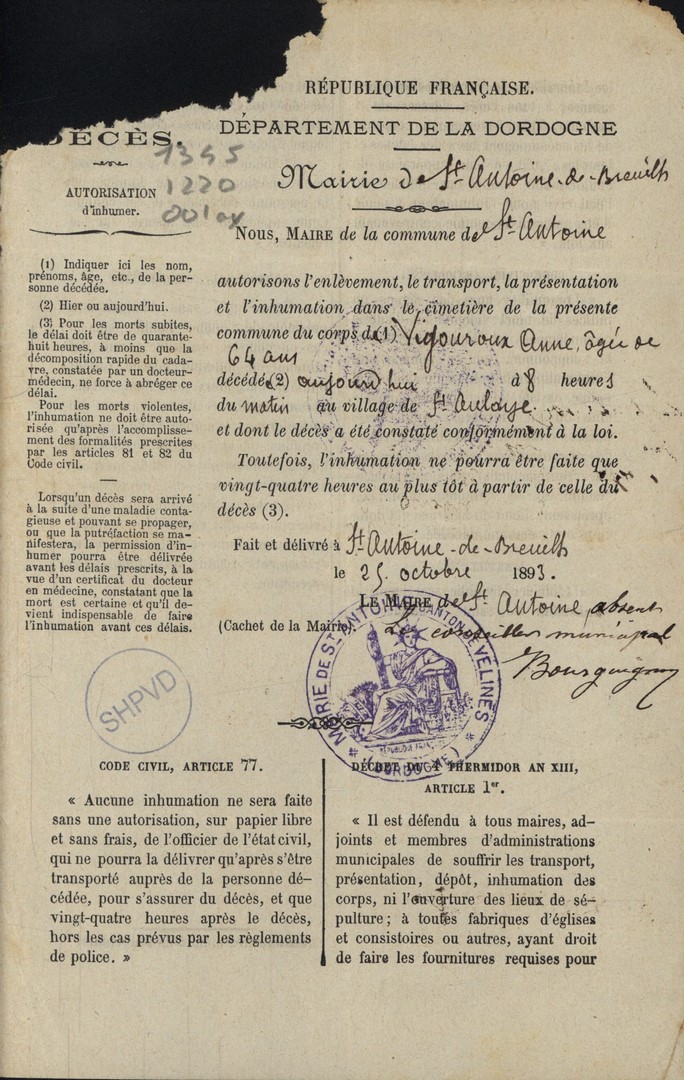 RÉPUBLIQUE FRANÇAISE.
DÉPARTEMENT DE LA DORDOGNE
Mairie de St Antoine-de-Breuilh
DÉCÈS.
1345
1220
AUTORISATION
d'inhumer.
(1) Indiquer ici les nom,
prénoms, âge, etc., de la per-
sonne décédée.
(2) Hier ou aujourd'hui.
(3) Pour les morts subites,
le délai doit être de quarante-
huit heures, à moins que la
décomposition rapide du cada-
vre, constatée par un docteur-
médecin, ne force à abréger ce
délai.
Pour les morts violentes,
l'inhumation ne doit être auto-
risée qu'après l'accomplisse-
ment des formalités prescrites
par les articles 81 et 82 du
Code civil.
Lorsqu'un décès sera arrivé
à la suite d'une maladie conta-
gieuse et pouvant se propager,
ou que la putréfaction se ma-
nifestera, la permission d'in-
humer pourra être délivrée
avant les délais prescrits, à la
vue d'un certificat du docteur
en médecine, constatant que la
mort est certaine et qu'il de-
vient indispensable de faire
l'inhumation avant ces délais.
SHPVD
Nous, MAIRE de la commune de St Antoine
autorisons l'enlèvement, le transport, la présentation
et l'inhumation dans le cimetière de la présente
commune du corps d (1) Vigouroux Anne, âgée de
64 ans
décédé (2) aujourd'hui à 8 heures
du matin au village de St Aulaye
et dont le décès a été constaté conformément à la loi.
Toutefois, l'inhumation ne pourra être faite que
vingt-quatre heures au plus tôt à partir de celle du
décès (3).
Fait et délivré à St Antoine-de-Breuilh
le 25 octobre 1893.
LE MAIRE de St Antoine, absent
(Cachet de la Mairie). Le conseiller municipal
Bourguignon
MAIRIE DE ST ANTOINE CANTON DE VÉLINES
RÉPUBLIQUE FRANÇ.
(DORDOGNE)
CODE CIVIL, ARTICLE 77.
« Aucune inhumation ne sera faite
sans une autorisation, sur papier libre
et sans frais, de l'officier de l'état civil,
qui ne pourra la délivrer qu'après s'être
transporté auprès de la personne dé-
cédée, pour s'assurer du décès, et que
vingt-quatre heures après le décès,
hors les cas prévus par les règlements
de police. »
DÉCRET DU 4 THERMIDOR AN XIII,
ARTICLE 1er.
« Il est défendu à tous maires, ad-
joints et membres d'administrations
municipales de souffrir les transport,
présentation, dépôt, inhumation des
corps, ni l'ouverture des lieux de sé-
pulture ; à toutes fabriques d'églises
et consistoires ou autres, ayant droit
de faire les fournitures requises pour